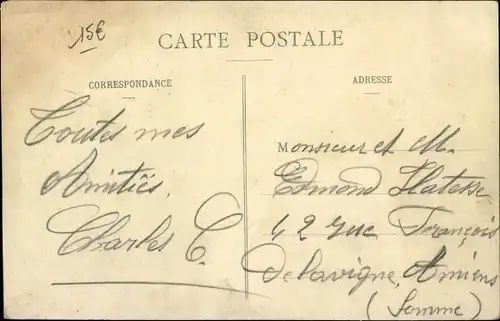 15€
CARTE POSTALE
CORRESPONDANCE
ADRESSE
Toutes mes
Amitiés.
Charles C.
Monsieur et M.
Edmond
42 rue François
Delavigne, Amiens
(Somme)